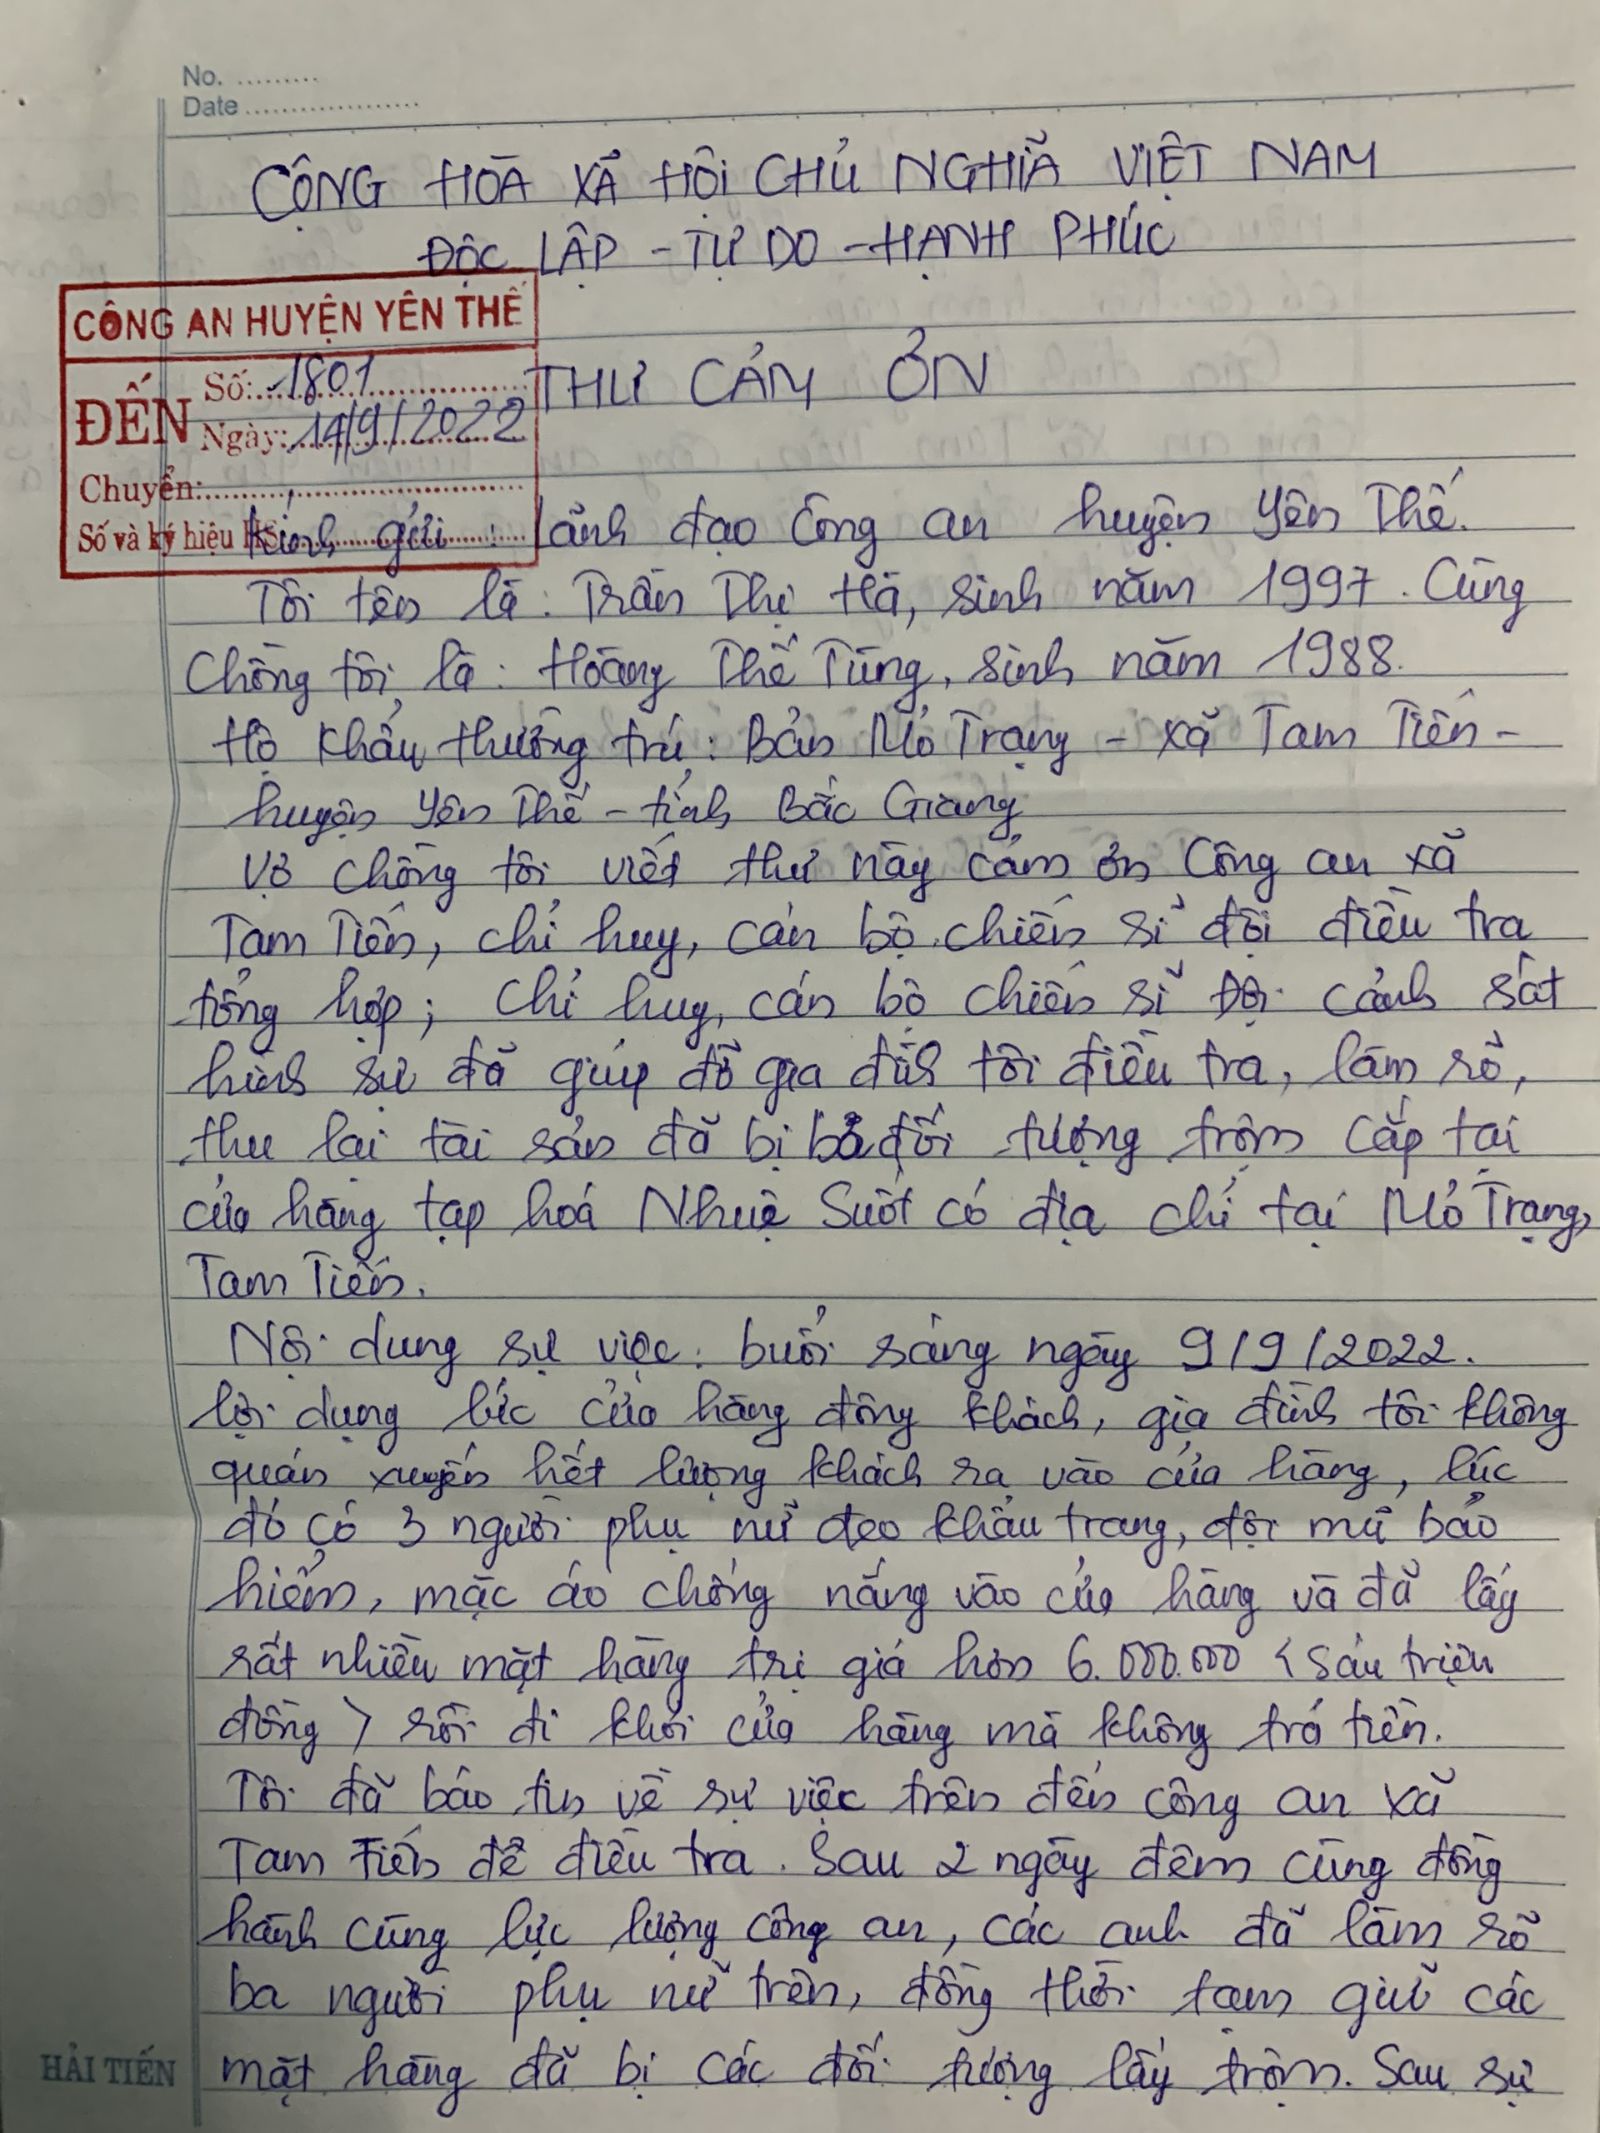 No. .........
Date ...................
CỘNG HÒA XÃ HỘI CHỦ NGHĨA VIỆT NAM
ĐỘC LẬP - TỰ DO - HẠNH PHÚC
CÔNG AN HUYỆN YÊN THẾ
ĐẾN
Số: 1801
Ngày: 14/9/2022
Chuyển:
Số và ký hiệu HS:
THƯ CẢM ƠN
Kính gửi: Lãnh đạo Công an huyện Yên Thế.
Tôi tên là: Trần Thị Hà, sinh năm 1997. Cùng
Chồng tôi là: Hoàng Thế Tùng, sinh năm 1988.
Hộ khẩu thường trú: Bản Mỏ Trạng - xã Tam Tiến -
huyện Yên Thế - tỉnh Bắc Giang
Vợ chồng tôi viết thư này cảm ơn Công an xã
Tam Tiến, chỉ huy, cán bộ chiến sĩ đội điều tra
tổng hợp; chỉ huy, cán bộ chiến sĩ Đội cảnh sát
hình sự đã giúp đỡ gia đình tôi điều tra, làm rõ,
thu lại tài sản đã bị đối tượng trộm cắp tại
cửa hàng tạp hoá Nhuệ Suốt có địa chỉ tại Mỏ Trạng,
Tam Tiến.
Nội dung sự việc: buổi sáng ngày 9/9/2022.
lợi dụng lúc cửa hàng đông khách, gia đình tôi không
quán xuyến hết lượng khách ra vào cửa hàng, lúc
đó có 3 người phụ nữ đeo khẩu trang, đội mũ bảo
hiểm, mặc áo chống nắng vào cửa hàng và đã lấy
rất nhiều mặt hàng trị giá hơn 6.000.000 (Sáu triệu
đồng) rồi đi khỏi cửa hàng mà không trả tiền.
Tôi đã báo tin về sự việc trên đến công an xã
Tam Tiến để điều tra. Sau 2 ngày đêm cùng đồng
hành cùng lực lượng công an, các anh đã làm rõ
ba người phụ nữ trên, đồng thời tạm giữ các
mặt hàng đã bị các đối tượng lấy trộm. Sau sự
HẢI TIẾN